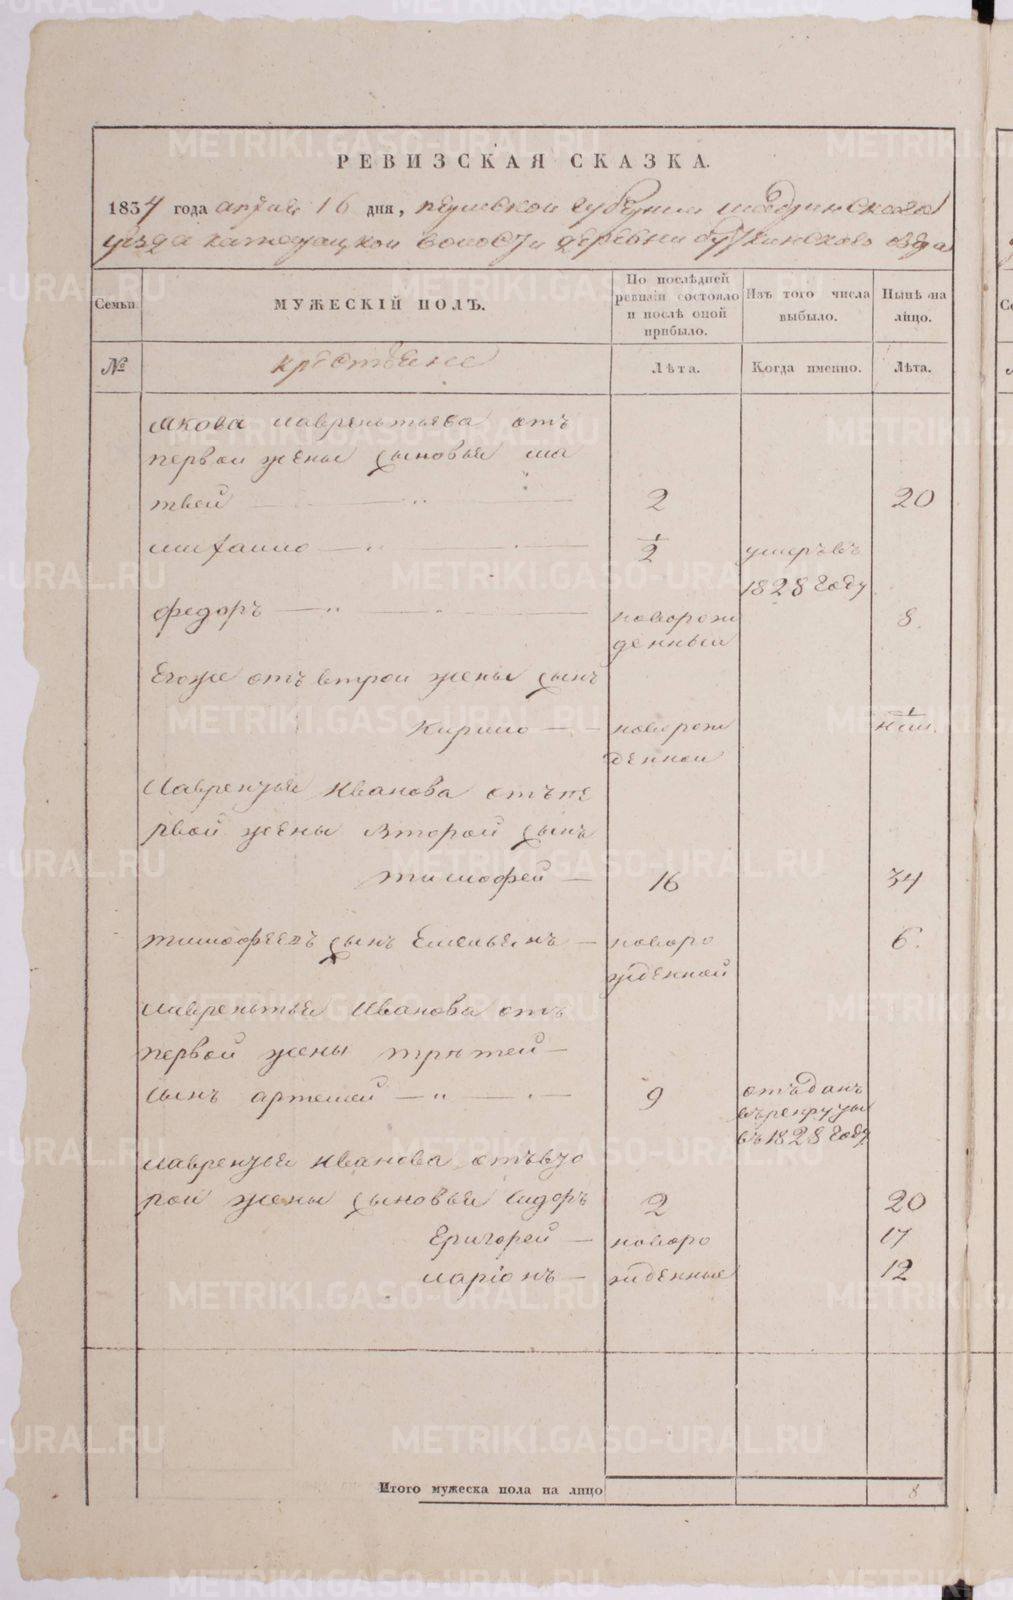 РЕВИЗСКАЯ СКАЗКА.
1834 года апреля 16 дня, пермской губернии шадринскаго
уезда волости деревни
Семьи
МУЖЕСКІЙ ПОЛЪ.
По послѣдней ревизіи состояло и послѣ оной прибыло.
Изъ того числа выбыло.
Нынѣ на лицо.
№
крестьяне
Лѣта.
Когда именно.
Лѣта.
Якова лаврентьева отъ
первой жены сыновья ма
твей 2 20
михайло ½ умеръ въ
1828 году
федоръ новорож 8.
денный
Егоже отъ втрой жены сынъ
Кирило новорож
денной
Лаврентья Иванова отъ пе
рвой жены второй сынъ
тимофей 16 34
тимофеевъ сынъ Емельянъ новоро 6.
жденной
лаврентья Иванова отъ
первой жены третей
сынъ артемей 9 отъданъ
въ рекруты
въ 1828 году
лаврентья иванова отъ вто
рой жены сыновья Сидоръ 2 20
Григорей новоро 17
ларіонъ жденные 12
Итого мужеска пола на лицо 8
METRIKI.GASO-URAL.RU